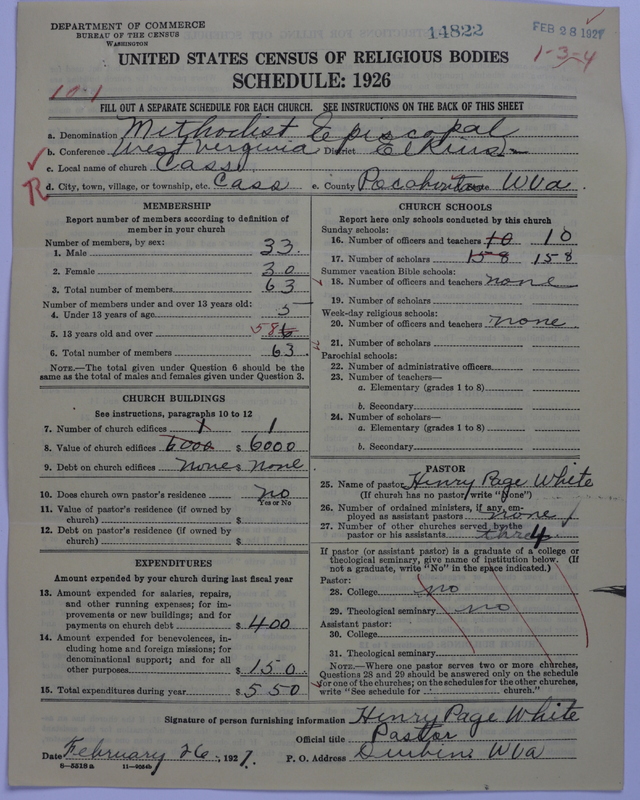 DEPARTMENT OF COMMERCE
BUREAU OF THE CENSUS
WASHINGTON
14822
FEB 28 1927
1-3-4
UNITED STATES CENSUS OF RELIGIOUS BODIES
SCHEDULE: 1926
10-1
FILL OUT A SEPARATE SCHEDULE FOR EACH CHURCH. SEE INSTRUCTIONS ON THE BACK OF THIS SHEET
a. Denomination Methodist Episcopal
b. Conference West Verginia District Elkins
c. Local name of church Cass
R d. City, town, village, or township, etc. Cass e. County Pocahontas State W Va.
MEMBERSHIP
Report number of members according to definition of member in your church
Number of members, by sex:
1. Male 33
2. Female 30
3. Total number of members 63
Number of members under and over 13 years old:
4. Under 13 years of age 5
5. 13 years old and over 58
6. Total number of members 63
NOTE.—The total given under Question 6 should be
same as the total of males and females given under Question 3.
CHURCH BUILDINGS
See instructions, paragraphs 10 to 12
7. Number of church edifices 1 1
8. Value of church edifices 6000 $ 6000
9. Debt on church edifices none $ none
10. Does church own pastor's residence no
Yes or No
11. Value of pastor's residence (if owned by
church) $
12. Debt on pastor's residence (if owned by
church) $
EXPENDITURES
Amount expended by your church during last fiscal year
13. Amount expended for salaries, repairs,
and other running expenses; for im-
provements or new buildings; and for
payments on church debt $ 400
14. Amount expended for benevolences, in-
cluding home and foreign missions; for
denominational support; and for all
other purposes $ 150
15. Total expenditures during year $ 550
CHURCH SCHOOLS
Report here only schools conducted by this church
Sunday schools:
16. Number of officers and teachers 10 10
17. Number of scholars 158 158
Summer vacation Bible schools:
18. Number of officers and teachers none
19. Number of scholars
Week-day religious schools:
20. Number of officers and teachers none
21. Number of scholars
Parochial schools:
22. Number of administrative officers
23. Number of teachers—
a. Elementary (grades 1 to 8)
b. Secondary
24. Number of scholars—
a. Elementary (grades 1 to 8)
b. Secondary
PASTOR
25. Name of pastor Henry Page White
(If church has no pastor, write "None")
26. Number of ordained ministers, if any, em-
ployed as assistant pastors none
27. Number of other churches served by the
pastor or his assistants three 4
If pastor (or assistant pastor) is a graduate of a college or
theological seminary, give name of institution below. (If
not a graduate, write "No" in the space indicated.)
Pastor:
28. College no
29. Theological seminary no
Assistant pastor:
30. College
31. Theological seminary
NOTE.—Where one pastor serves two or more churches,
Questions 28 and 29 should be answered only on the schedule
for one of the churches; on the schedules for the other churches,
write "See schedule for church."
Signature of person furnishing information Henry Page White
Official title Pastor
Date February 26, 1927. P. O. Address Durbin W Va
8-5518 a 11-4664b